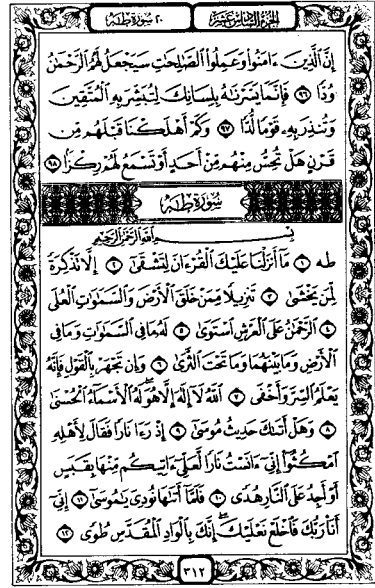 الجزء السادس عشر
٢٠ سورة طه
إِنَّ ٱلَّذِينَ ءَامَنُوا۟ وَعَمِلُوا۟ ٱلصَّـٰلِحَـٰتِ سَيَجْعَلُ لَهُمُ ٱلرَّحْمَـٰنُ
وُدًّا ٩٦ فَإِنَّمَا يَسَّرْنَـٰهُ بِلِسَانِكَ لِتُبَشِّرَ بِهِ ٱلْمُتَّقِينَ
وَتُنذِرَ بِهِۦ قَوْمًا لُّدًّا ٩٧ وَكَمْ أَهْلَكْنَا قَبْلَهُم مِّن
قَرْنٍ هَلْ تُحِسُّ مِنْهُم مِّنْ أَحَدٍ أَوْ تَسْمَعُ لَهُمْ رِكْزًۢا ٩٨
سُورَةُ طه
بِسْمِ ٱللَّهِ ٱلرَّحْمَـٰنِ ٱلرَّحِيمِ
طه ١ مَآ أَنزَلْنَا عَلَيْكَ ٱلْقُرْءَانَ لِتَشْقَىٰٓ ٢ إِلَّا تَذْكِرَةً
لِّمَن يَخْشَىٰ ٣ تَنزِيلًا مِّمَّنْ خَلَقَ ٱلْأَرْضَ وَٱلسَّمَـٰوَٰتِ ٱلْعُلَى
٤ ٱلرَّحْمَـٰنُ عَلَى ٱلْعَرْشِ ٱسْتَوَىٰ ٥ لَهُۥ مَا فِى ٱلسَّمَـٰوَٰتِ وَمَا فِى
ٱلْأَرْضِ وَمَا بَيْنَهُمَا وَمَا تَحْتَ ٱلثَّرَىٰ ٦ وَإِن تَجْهَرْ بِٱلْقَوْلِ فَإِنَّهُۥ
يَعْلَمُ ٱلسِّرَّ وَأَخْفَى ٧ ٱللَّهُ لَآ إِلَـٰهَ إِلَّا هُوَ ۖ لَهُ ٱلْأَسْمَآءُ ٱلْحُسْنَىٰ
٨ وَهَلْ أَتَىٰكَ حَدِيثُ مُوسَىٰٓ ٩ إِذْ رَءَا نَارًا فَقَالَ لِأَهْلِهِ
ٱمْكُثُوٓا۟ إِنِّىٓ ءَانَسْتُ نَارًا لَّعَلِّىٓ ءَاتِيكُم مِّنْهَا بِقَبَسٍ
أَوْ أَجِدُ عَلَى ٱلنَّارِ هُدًى ١٠ فَلَمَّآ أَتَىٰهَا نُودِىَ يَـٰمُوسَىٰٓ ١١ إِنِّىٓ
أَنَا۠ رَبُّكَ فَٱخْلَعْ نَعْلَيْكَ ۖ إِنَّكَ بِٱلْوَادِ ٱلْمُقَدَّسِ طُوًى ١٢
٣١٢